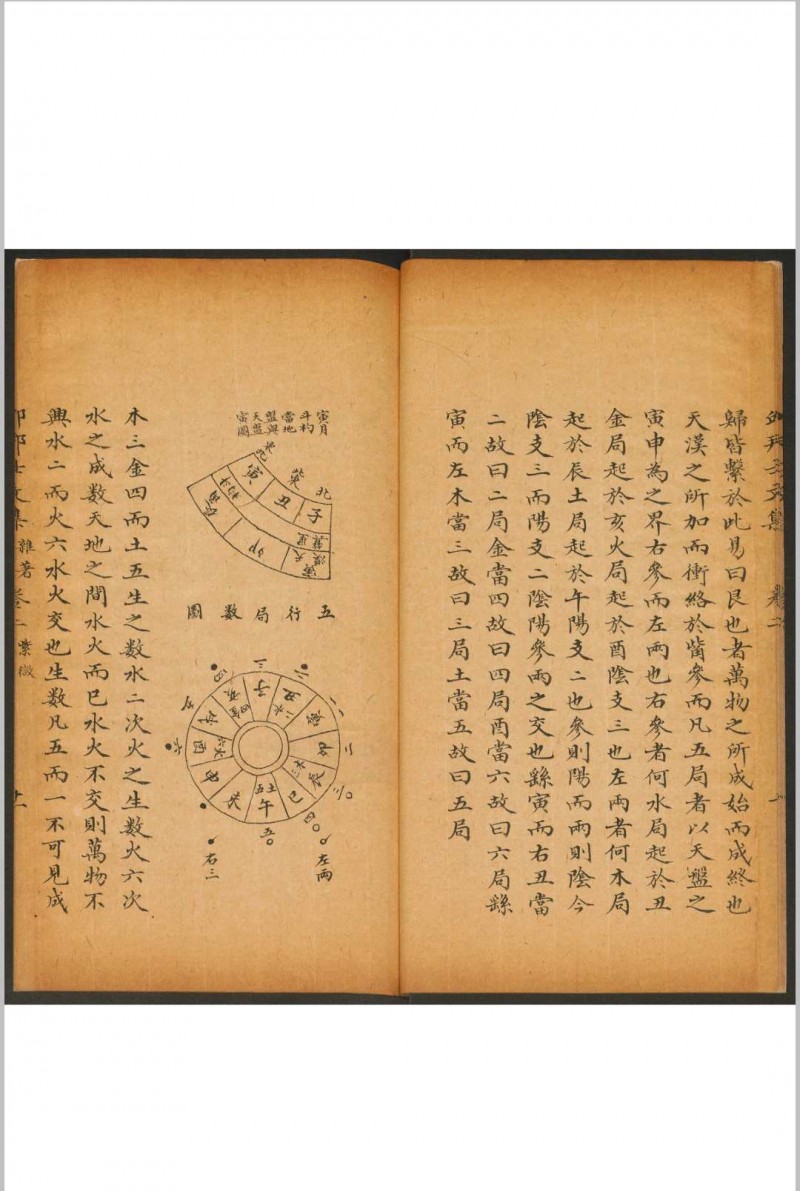 歸皆繫於此易曰艮也者萬物之所成始而成終也
天漢之所加而衝絡於觜參而凡五局者以天盤之
寅申為之界右參而左兩也右參者何水局起於丑
金局起於亥火局起於酉陰支三也左兩者何木局
起於辰土局起於午陽支二也參則陽而兩則陰今
陰支三而陽支二陰陽參兩之交也繇寅而右丑當
二故曰二局金當四故曰四局酉當六故曰六局繇
寅而左木當三故曰三局土當五故曰五局
寅月
斗杓
當地
盤與
天盤
寅圖
北
東北
紫
子
丑
寅
卯
五行局數圖
子
丑
寅
卯
辰
巳
土五
午
未
申
酉
戌
亥
左兩
右三
木三金四而土五生之數水二次火之生數火六次
水之成數天地之間水火而已水火不交則萬物不
興水二而火六水火交也生數凡五而一不可見成
雜著
卷二
紫微